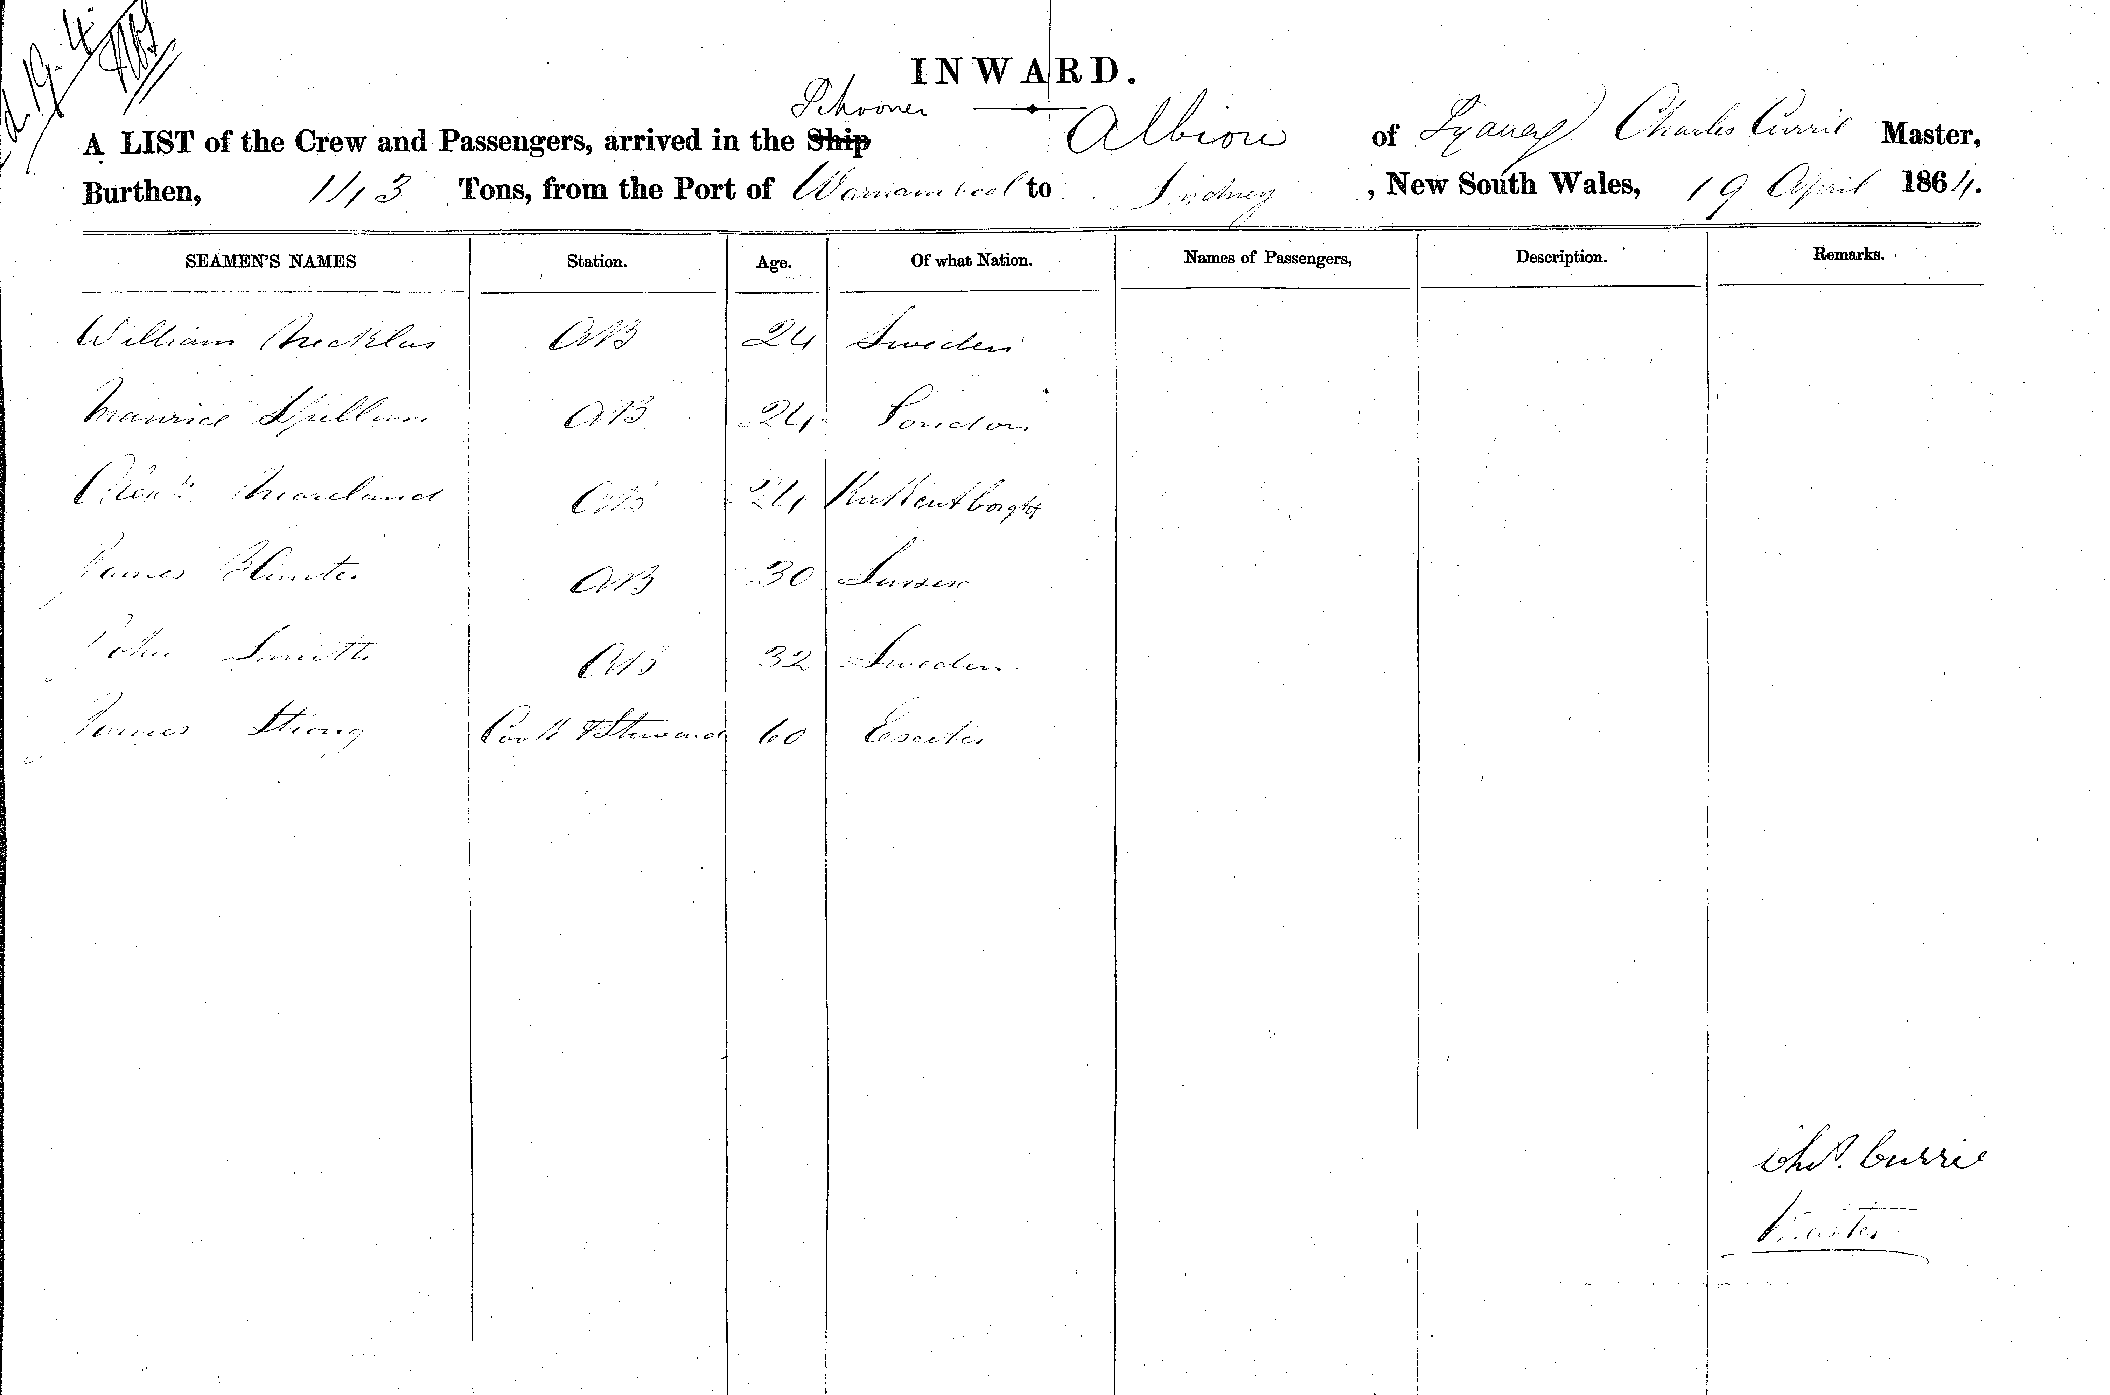 19.4.
INWARD.
Schooner
A LIST of the Crew and Passengers, arrived in the Ship Albion of Sydney Charles Currie Master,
Burthen, 113 Tons, from the Port of Warnambool to Sydney, New South Wales, 19 April 1864.
SEAMEN'S NAMES Station. Age. Of what Nation. Names of Passengers, Description. Remarks.
William AB 24 Sweden
Maurice Spillum AB 24 London
Alexr Moreland AB 24
James Hunter AB 30 Sussex
John Smith AB 32 Sweden
James Strong Cook & Steward 60 Exeter
Chs. Currie
Master